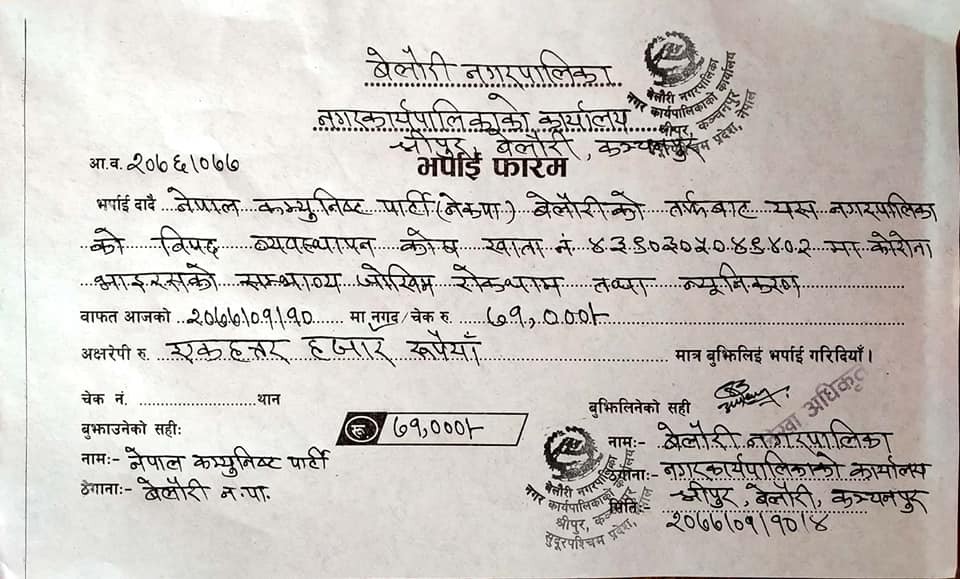 बेलौरी नगरपालिका
नगरकार्यपालिकाको कार्यालय
श्रीपुर, बेलौरी, कञ्चनपुर
बेलौरी नगरपालिका
नगर कार्यपालिकाको कार्यालय
श्रीपुर, कञ्चनपुर
सुदूरपश्चिम प्रदेश, नेपाल
भर्पाई फारम
आ.व. २०७६।०७७
भर्पाई दादै नेपाल कम्युनिष्ट पार्टी (नेकपा) बेलौरीको तर्फबाट यस नगरपालिका
को विपद व्यवस्थापन कोष खाता नं ४३६०३०५०४६४०२ मा कोरोना
भाइरसको सम्भाव्य जोखिम रोकथाम तथा न्यूनिकरण
वाफत आजको २०७७।०१।१० मा नगद/चेक रु. ७१,०००।-
अक्षरेपी रु. एकहत्तर हजार रूपैयाँ मात्र बुझिलिई भर्पाई गरिदियाँ।
चेक नं. थान
बुझिलिनेको सही
लेखा अधिकृत
बुझाउनेको सहीः
रू ७१,०००।-
नामः- नेपाल कम्युनिष्ट पार्टी
ठेगानाः- बेलौरी न.पा.
बेलौरी नगरपालिका
नगर कार्यपालिकाको कार्यालय
श्रीपुर, कञ्चनपुर
सुदूरपश्चिम प्रदेश, नेपाल
नामः- बेलौरी नगरपालिका
ठेगानाः नगरकार्यपालिकाको कार्यालय
श्रीपुर, बेलौरी, कञ्चनपुर
मिति: २०७७।०१।१०।४